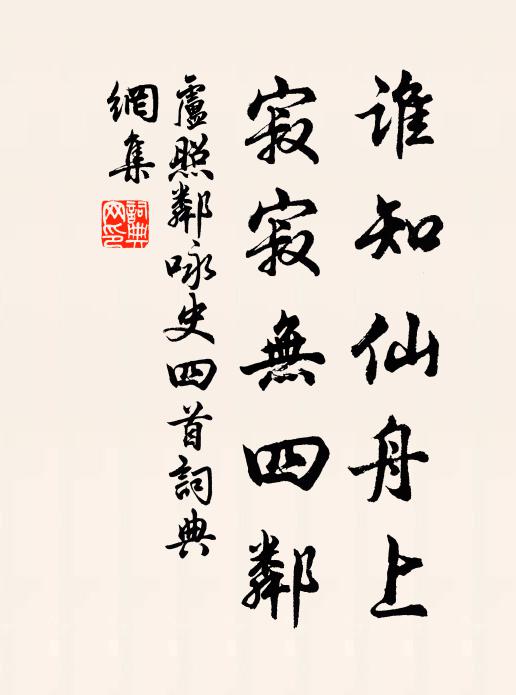 谁知仙舟上
寂寂無四鄰
盧照鄰咏史四首詞典
網集
詞典
网印